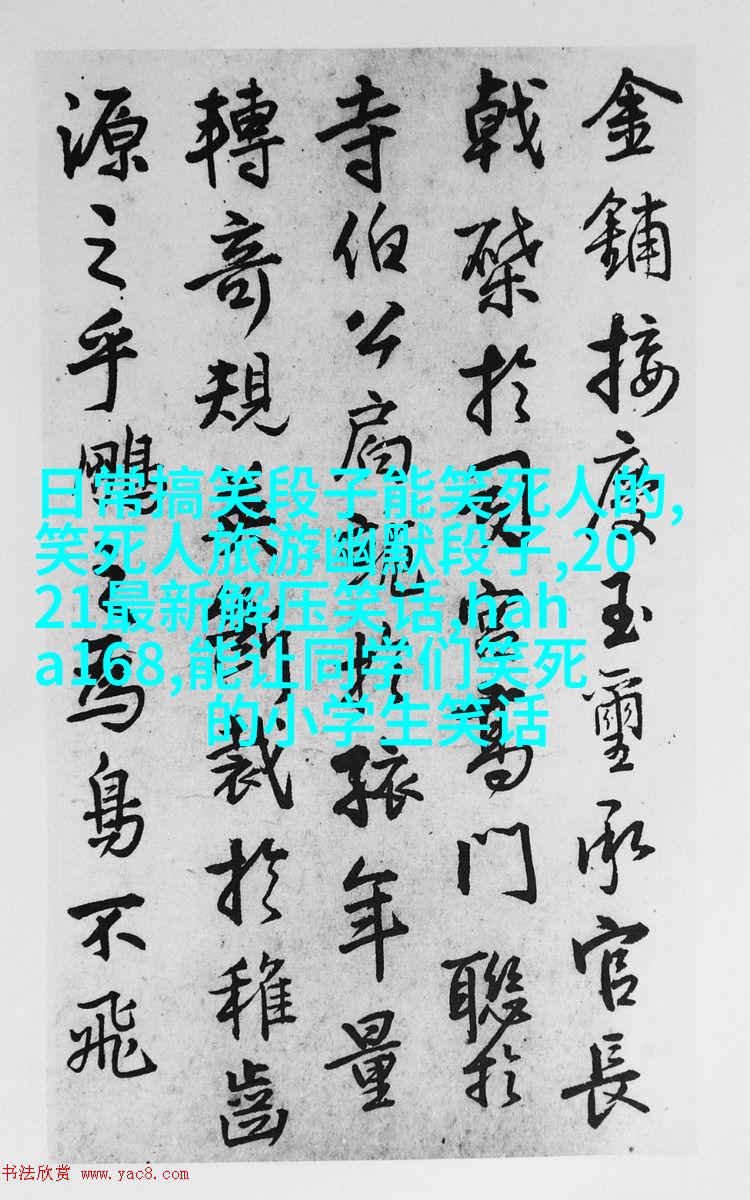 金鋪接慶玉璽承官長
戟於門聯於
寺伯公孩年量
轉奇規裁於稚齒
源之乎不飛
日常搞笑段子能笑死人的,
笑死人旅游幽默段子,20
21最新解压笑话,hah
a168,能让同学们笑死
的小学生笑话
书法欣赏 www.yac8.com